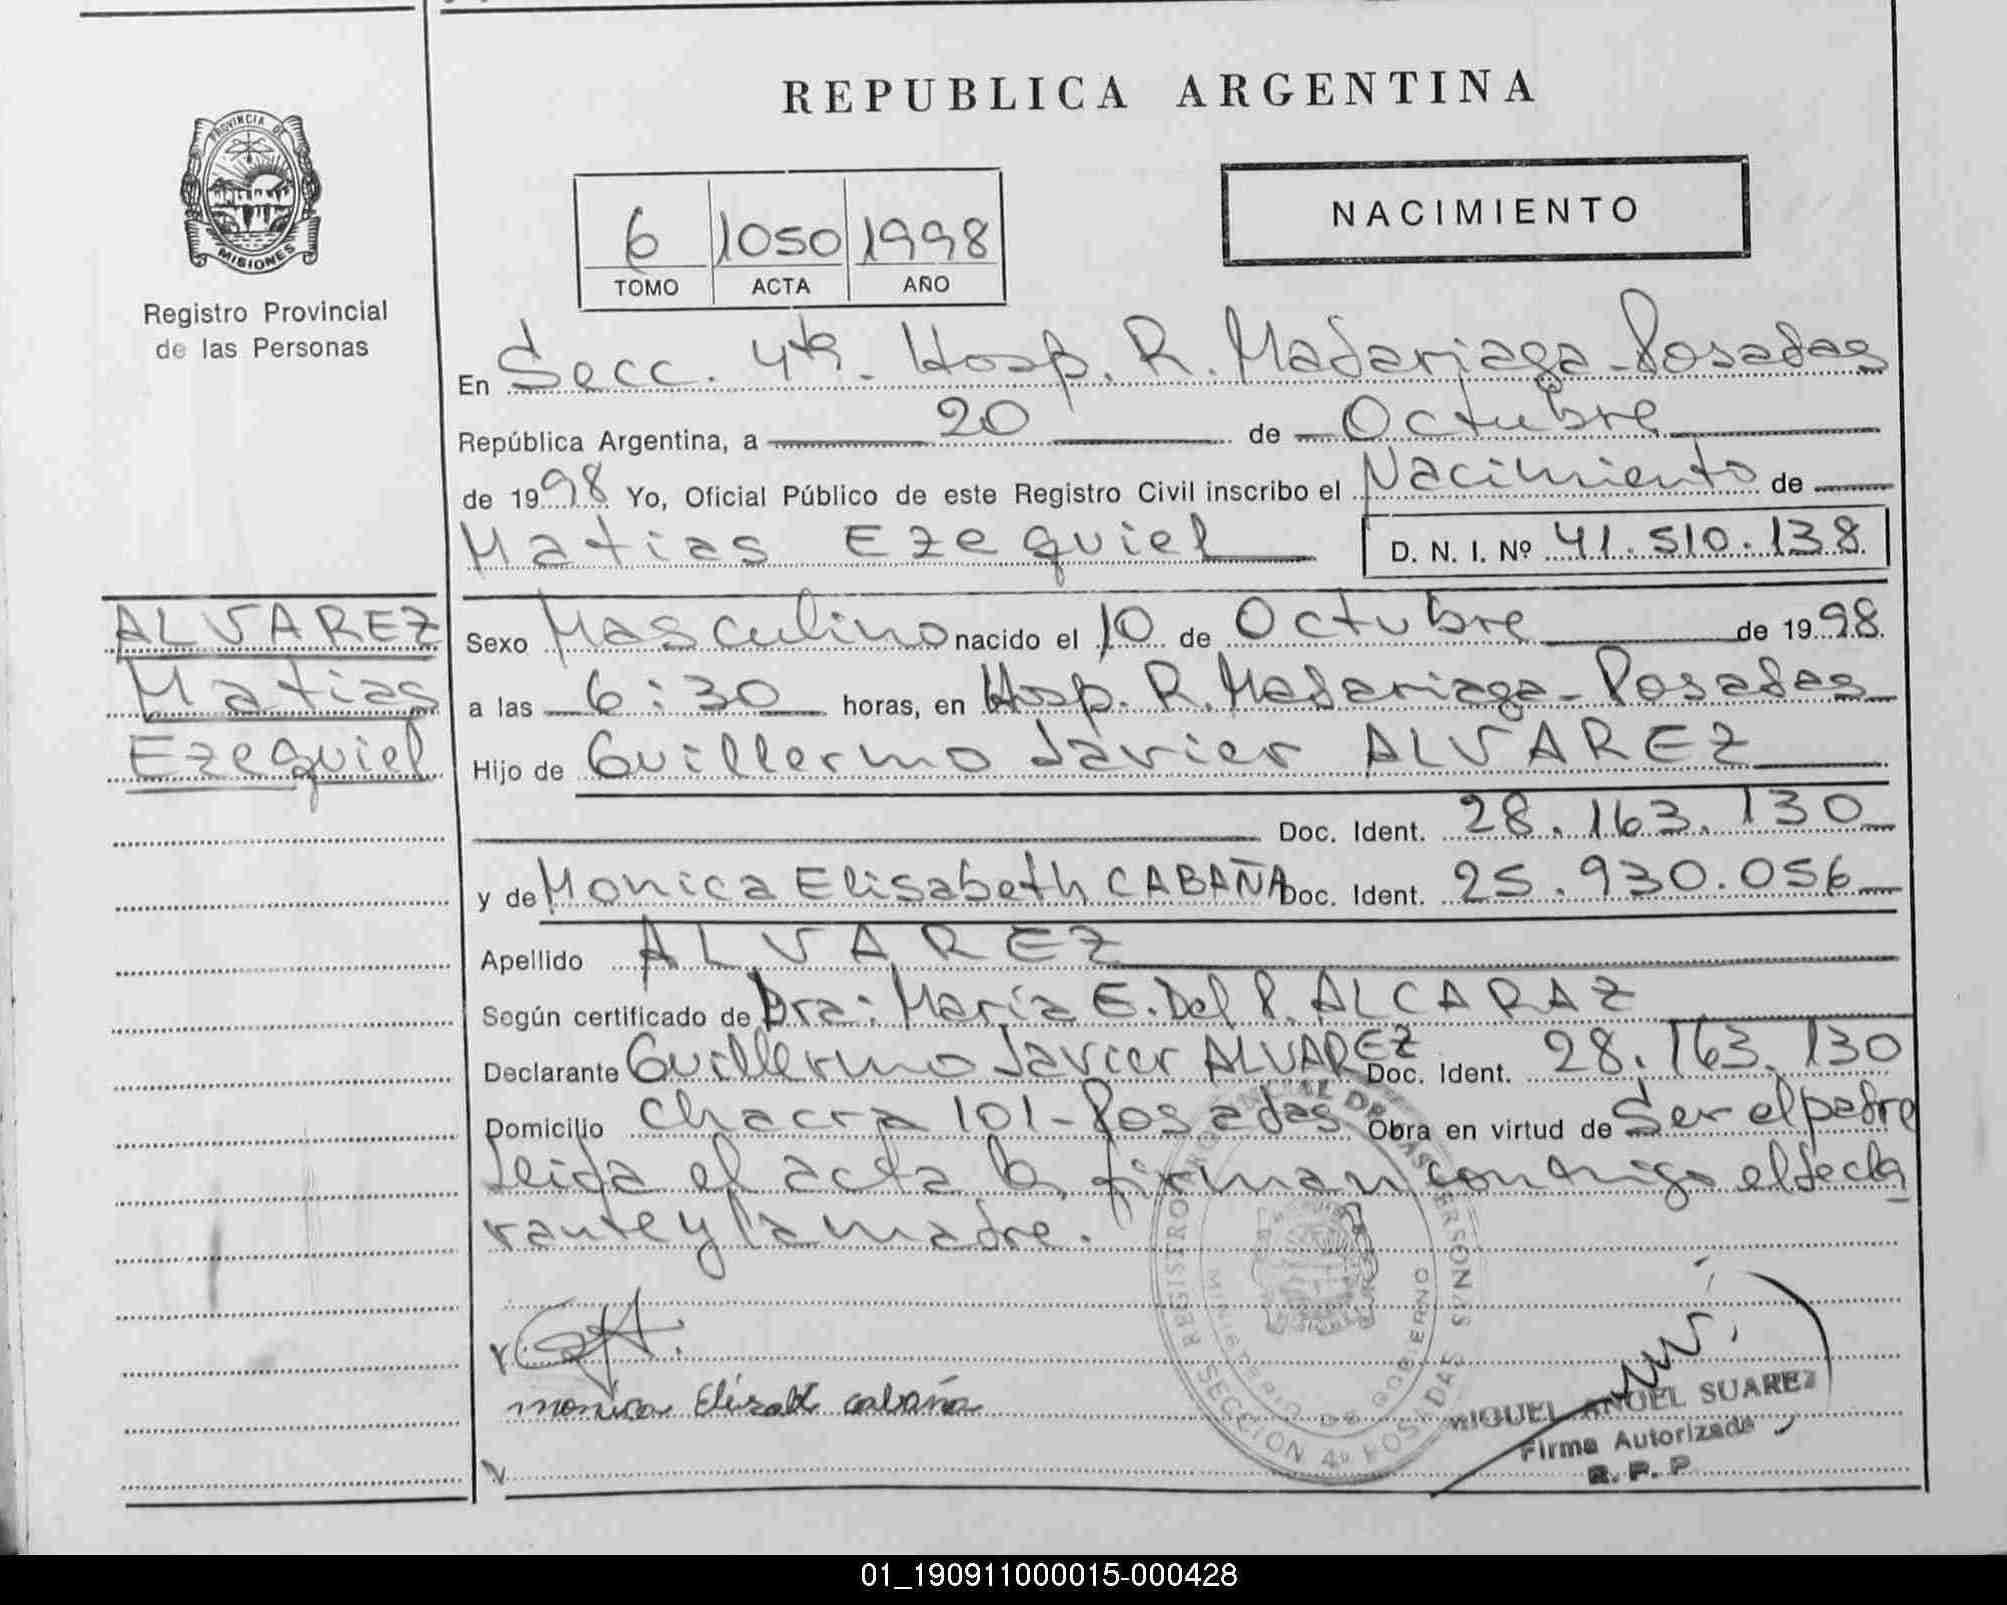 REPUBLICA ARGENTINA
PROVINCIA DE
MISIONES
Registro Provincial
de las Personas
NACIMIENTO
6 1050 1998
TOMO ACTA AÑO
En Secc. 4ta. Hosp. R. Madariaga - Posadas
República Argentina, a 20 de Octubre
de 1998 Yo, Oficial Público de este Registro Civil inscribo el Nacimiento de
Matias Ezequiel D. N. I. Nº 41.510.138
ALVAREZ
Matias
Ezequiel
Sexo Masculino nacido el 10 de Octubre de 1998.
a las 6:30 horas, en Hosp. R. Madariaga - Posadas
Hijo de Guillermo Javier ALVAREZ
Doc. Ident. 28.163.130
y de Monica Elisabeth CABAÑA Doc. Ident. 25.930.056
Apellido ALVAREZ
Según certificado de Dra: María E. Del P. ALCARAZ
Declarante Guillermo Javier ALVAREZ Doc. Ident. 28.163.130
Domicilio Chacra 101 - Posadas Obra en virtud de Ser el padre
Leida el acta la firman conmigo el decla
rante y la madre.
REGISTRO PROVINCIAL DE LAS PERSONAS
MINISTERIO DE GOBIERNO
SECCION 4º POSADAS
monica Elisabt cabaña
MIGUEL ANGEL SUAREZ
Firma Autorizada
R. P. P
01_190911000015-000428